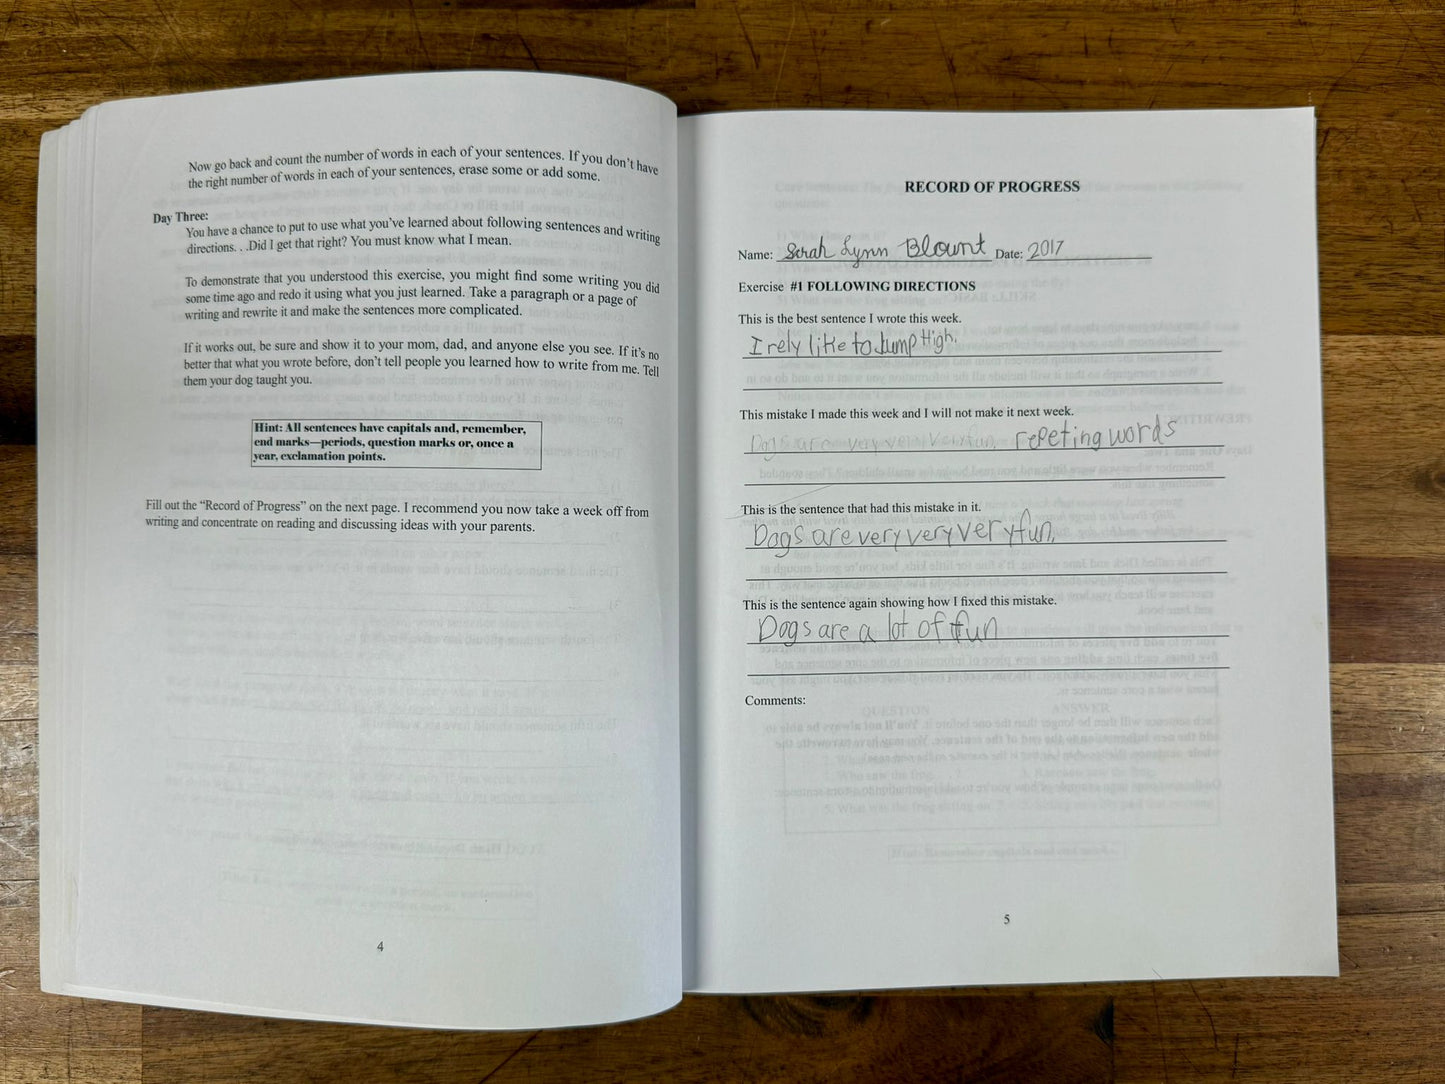 Now go back and count the number of words in each of your sentences. If you don't have
the right number of words in each of your sentences, erase some or add some.
Day Three:
You have a chance to put to use what you've learned about following sentences and writing
directions. . .Did I get that right? You must know what I mean.
To demonstrate that you understood this exercise, you might find some writing you did
some time ago and redo it using what you just learned. Take a paragraph or a page of
writing and rewrite it and make the sentences more complicated.
If it works out, be sure and show it to your mom, dad, and anyone else you see. If it's no
better that what you wrote before, don't tell people you learned how to write from me. Tell
them your dog taught you.
Hint: All sentences have capitals and, remember,
end marks—periods, question marks or, once a
year, exclamation points.
Fill out the “Record of Progress” on the next page. I recommend you now take a week off from
writing and concentrate on reading and discussing ideas with your parents.
4
RECORD OF PROGRESS
Name: Sarah Lynn Blount Date: 2017
Exercise #1 FOLLOWING DIRECTIONS
This is the best sentence I wrote this week.
I rely like to Jump High.
This mistake I made this week and I will not make it next week.
Dogs are very very very fun. repeting words
This is the sentence that had this mistake in it.
Dogs are very very very fun.
This is the sentence again showing how I fixed this mistake.
Dogs are a lot of fun
Comments:
5